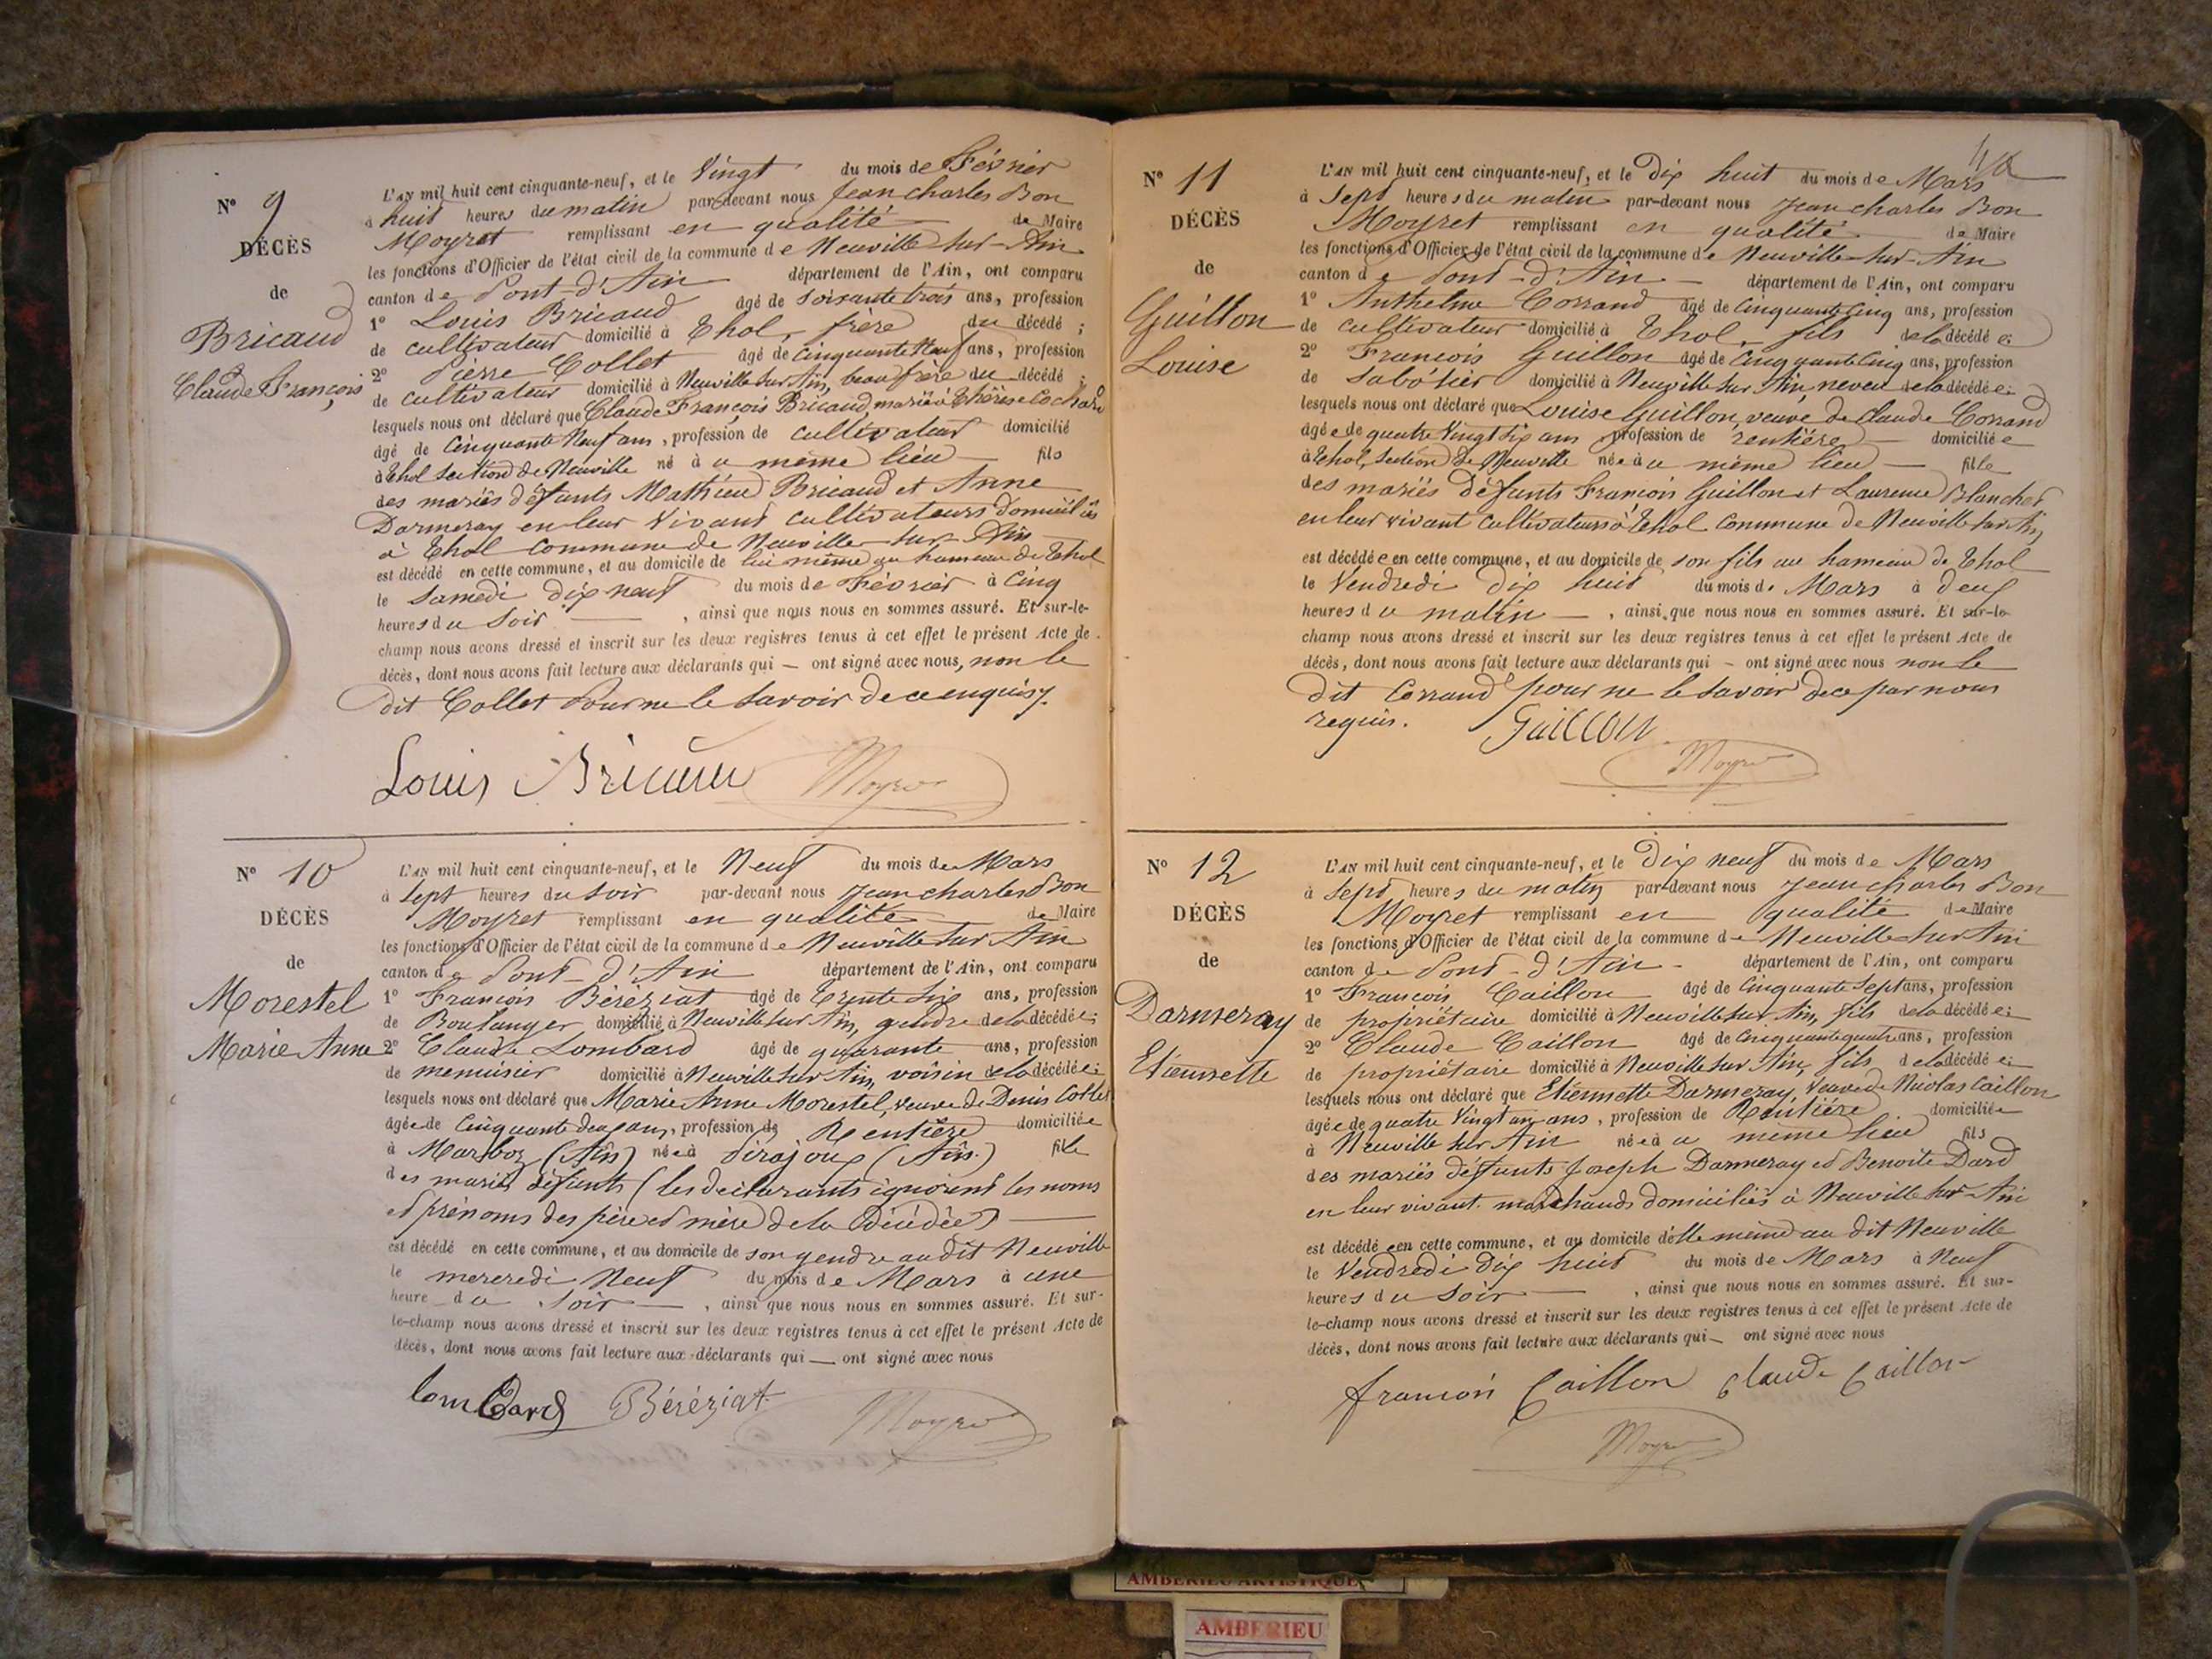 N° 9
DÉCÈS
de
Bricaud
Claude François
L'AN mil huit cent cinquante-neuf, et le Vingt du mois de Février
à huit heures du matin par-devant nous Jean charles Bon
Moyret remplissant en qualité de Maire
les fonctions d'Officier de l'état civil de la commune de Neuville sur-Ain
canton de Pont-d'Ain département de l'Ain, ont comparu
1° Louis Bricaud âgé de soixante trois ans, profession
de cultivateur domicilié à Thol, frère du décédé ;
2° Pierre Collet âgé de cinquante Neuf ans, profession
de cultivateur domicilié à Neuville sur Ain, beau frère du décédé ;
lesquels nous ont déclaré que Claude François Bricaud, marié à Thérèse Cochard
âgé de cinquante Neuf ans, profession de cultivateur domicilié
à Thol section de Neuville né à ce même lieu fils
des mariés défunts Mathieu Bricaud et Anne
Darmeray en leur Vivant cultivateurs domiciliés
à Thol commune de Neuville sur Ain
est décédé en cette commune, et au domicile de lui même au hameau de Thol
le Samedi dix neuf du mois de Février à Cinq
heures du Soir , ainsi que nous nous en sommes assuré. Et sur-le-
champ nous avons dressé et inscrit sur les deux registres tenus à cet effet le présent Acte de
décès, dont nous avons fait lecture aux déclarants qui — ont signé avec nous, non le
dit Collet Pour ne le savoir de ce enquis.
Louis Bricaud Moyret
N° 10
DÉCÈS
de
Morestel
Marie Anne
L'AN mil huit cent cinquante-neuf, et le Neuf du mois de Mars
à Sept heures du soir par-devant nous Jean charles Bon
Moyret remplissant en qualité de Maire
les fonctions d'Officier de l'état civil de la commune de Neuville sur Ain
canton de Pont-d'Ain département de l'Ain, ont comparu
1° François Béréziat âgé de Trente Six ans, profession
de Boulanger domicilié à Neuville sur Ain, gendre de la décédée ;
2° Claude Lombard âgé de quarante ans, profession
de menuisier domicilié à Neuville sur Ain, voisin de la décédée ;
lesquels nous ont déclaré que Marie Anne Morestel, veuve de Denis
âgée de Cinquante deux ans, profession de Rentière domiciliée
à Marboz (Ain) née à Pirajoux (Ain) fille
des mariés défunts (les déclarants ignorent les noms
et prénoms des père et mère de la Décédée)
est décédé en cette commune, et au domicile de son gendre au dit Neuville
le mercredi Neuf du mois de Mars à une
heure du Soir , ainsi que nous nous en sommes assuré. Et sur-
le-champ nous avons dressé et inscrit sur les deux registres tenus à cet effet le présent Acte de
décès, dont nous avons fait lecture aux déclarants qui — ont signé avec nous
lombard Béréziat Moyret
N° 11
DÉCÈS
de
Guillon
Louise
L'AN mil huit cent cinquante-neuf, et le Dix huit du mois de Mars
à Sept heures du matin par-devant nous Jean charles Bon
Moyret remplissant en qualité de Maire
les fonctions d'Officier de l'état civil de la commune de Neuville-sur-Ain
canton de Pont-d'Ain département de l'Ain, ont comparu
1° Anthelme Corrand âgé de Cinquante Cinq ans, profession
de cultivateur domicilié à Thol, fils de la décédée ;
2° François Guillon âgé de Cinquante Cinq ans, profession
de sabotier domicilié à Neuville sur Ain, neveu de la décédée ;
lesquels nous ont déclaré que Louise Guillon, veuve de Claude Corrand
âgée de quatre Vingt Six ans profession de rentière domiciliée
à Thol, Section de Neuville née à ce même lieu fille
des mariés défunts François Guillon et Laurence Blanchet
en leur vivant cultivateurs à Thol Commune de Neuville sur Ain,
est décédée en cette commune, et au domicile de son fils au hameau de Thol
le Vendredi Dix huit du mois de Mars à deux
heures du matin , ainsi que nous nous en sommes assuré. Et sur-le-
champ nous avons dressé et inscrit sur les deux registres tenus à cet effet le présent Acte de
décès, dont nous avons fait lecture aux déclarants qui — ont signé avec nous non le
dit Corrand pour ne le savoir de ce par nous
requis. Guillon
Moyret
N° 12
DÉCÈS
de
Darmeray
Etiennette
L'AN mil huit cent cinquante-neuf, et le Dix neuf du mois de Mars
à Sept heures du matin par-devant nous Jean charles Bon
Moyret remplissant en qualité de Maire
les fonctions d'Officier de l'état civil de la commune de Neuville sur Ain
canton de Pont-d'Ain département de l'Ain, ont comparu
1° François Caillon âgé de Cinquante Sept ans, profession
de propriétaire domicilié à Neuville sur Ain, fils de la décédée ;
2° Claude Caillon âgé de Cinquante quatre ans, profession
de propriétaire domicilié à Neuville sur Ain, fils de la décédée ;
lesquels nous ont déclaré que Etiennette Darmeray, Veuve de Nicolas Caillon
âgée de quatre Vingt un ans, profession de Rentière domiciliée
à Neuville sur Ain née à ce même lieu fils
des mariés défunts Joseph Darmeray et Benoite Dard
en leur vivant marchands domiciliés à Neuville sur Ain
est décédée en cette commune, et au domicile d'elle même au dit Neuville
le Vendredi Dix huit du mois de Mars à Neuf
heures du Soir , ainsi que nous nous en sommes assuré. Et sur-
le-champ nous avons dressé et inscrit sur les deux registres tenus à cet effet le présent Acte de
décès, dont nous avons fait lecture aux déclarants qui — ont signé avec nous
françois Caillon Claude Caillon
Moyret
AMBERIEU ARTISTIQUE
AMBERIEU